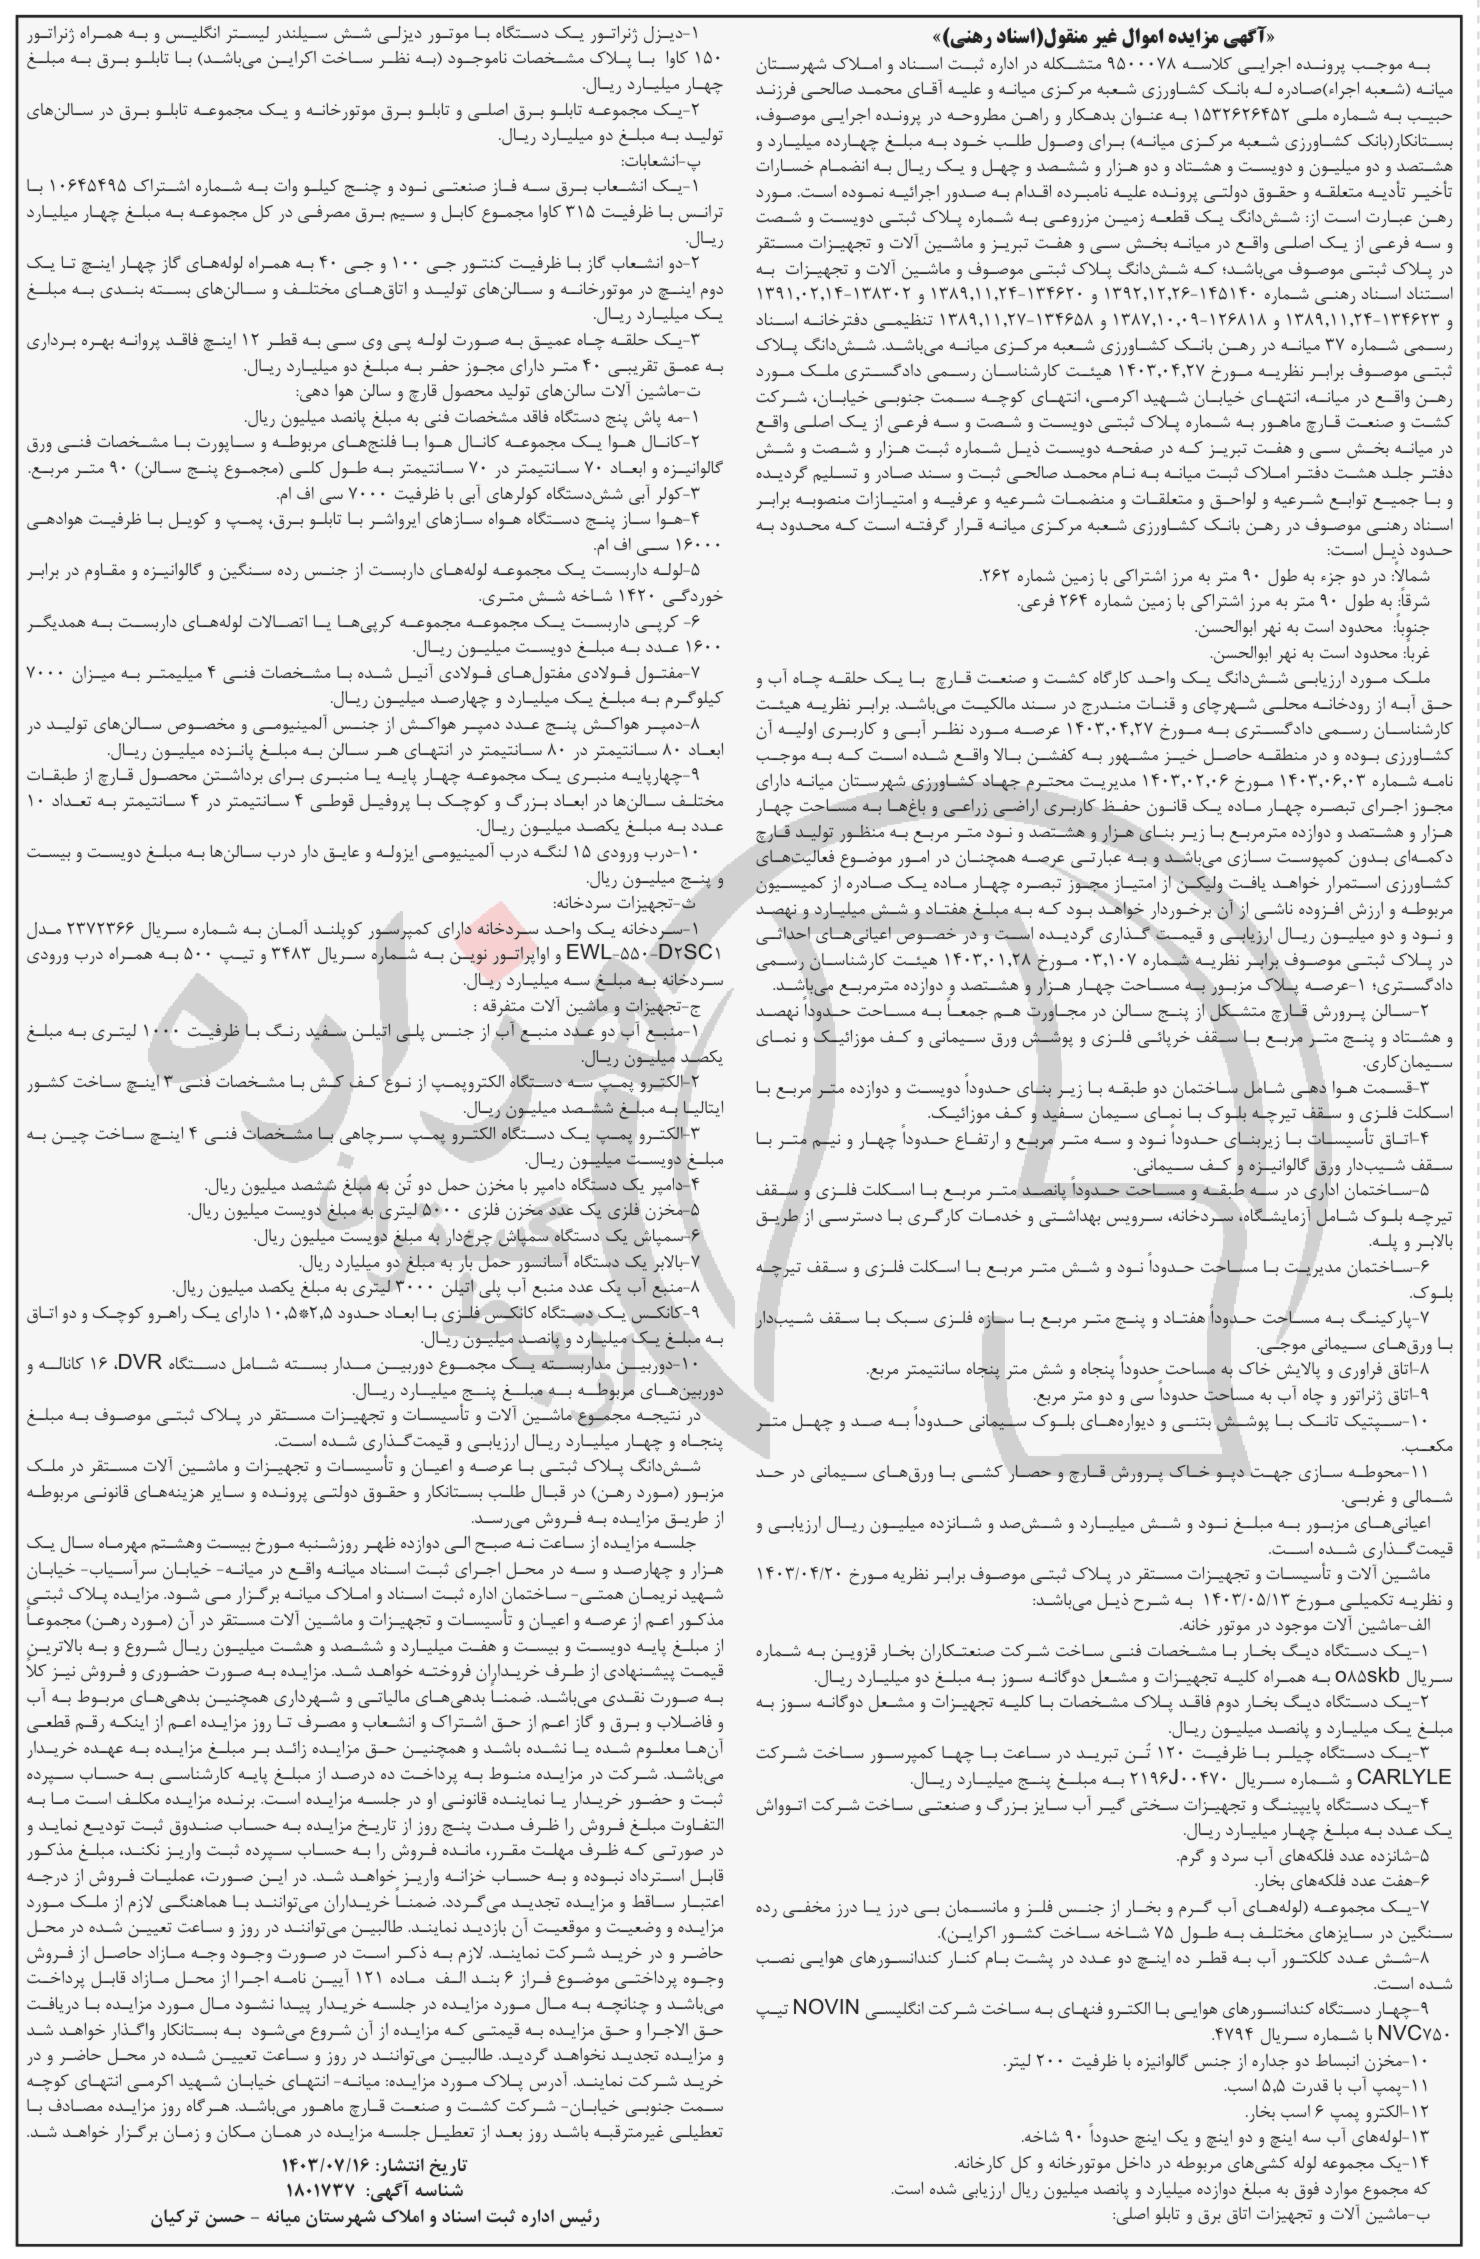 «آگهی مزایده اموال غیر منقول(اسناد رهنی)»
به موجب پرونده اجرایی کلاسه ۹۵۰۰۰۷۸ متشکله در اداره ثبت اسناد و املاک شهرستان
میانه (شعبه اجراء)صادره له بانک کشاورزی شعبه مرکزی میانه و علیه آقای محمد صالحی فرزند
حبیب به شماره ملی ۱۵۳۲۶۲۶۴۵۲ به عنوان بدهکار و راهن مطروحه در پرونده اجرایی موصوف،
بستانکار(بانک کشاورزی شعبه مرکزی میانه) برای وصول طلب خود به مبلغ چهارده میلیارد و
هشتصد و دو میلیون و دویست و هشتاد و دو هزار و ششصد و چهل و یک ریال به انضمام خسارات
تأخیر تأدیه متعلقه و حقوق دولتی پرونده علیه نامبرده اقدام به صدور اجرائیه نموده است. مورد
رهن عبارت است از: شش‌دانگ یک قطعه زمین مزروعی به شماره پلاک ثبتی دویست و شصت
و سه فرعی از یک اصلی واقع در میانه بخش سی و هفت تبریز و ماشین آلات و تجهیزات مستقر
در پلاک ثبتی موصوف می‌باشد؛ که شش‌دانگ پلاک ثبتی موصوف و ماشین آلات و تجهیزات به
استناد اسناد رهنی شماره ۱۴۵۱۴۰-۱۳۹۲,۱۲,۲۶ و ۱۳۴۶۲۰-۱۳۸۹,۱۱,۲۴ و ۱۳۸۳۰۲-۱۳۹۱,۰۲,۱۴
و ۱۳۴۶۲۳-۱۳۸۹,۱۱,۲۴ و ۱۲۶۸۱۸-۱۳۸۷,۱۰,۰۹ و ۱۳۴۶۵۸-۱۳۸۹,۱۱,۲۷ تنظیمی دفترخانه اسناد
رسمی شماره ۳۷ میانه در رهن بانک کشاورزی شعبه مرکزی میانه می‌باشد. شش‌دانگ پلاک
ثبتی موصوف برابر نظریه مورخ ۱۴۰۳,۰۴,۲۷ هیئت کارشناسان رسمی دادگستری ملک مورد
رهن واقع در میانه، انتهای خیابان شهید اکرمی، انتهای کوچه سمت جنوبی خیابان، شرکت
کشت و صنعت قارچ ماهور به شماره پلاک ثبتی دویست و شصت و سه فرعی از یک اصلی واقع
در میانه بخش سی و هفت تبریز که در صفحه دویست ذیل شماره ثبت هزار و شصت و شش
دفتر جلد هشت دفتر املاک ثبت میانه به نام محمد صالحی ثبت و سند صادر و تسلیم گردیده
و با جمیع توابع شرعیه و لواحق و متعلقات و منضمات شرعیه و عرفیه و امتیازات منصوبه برابر
اسناد رهنی موصوف در رهن بانک کشاورزی شعبه مرکزی میانه قرار گرفته است که محدود به
حدود ذیل است:
شمالاً: در دو جزء به طول ۹۰ متر به مرز اشتراکی با زمین شماره ۲۶۲.
شرقاً: به طول ۹۰ متر به مرز اشتراکی با زمین شماره ۲۶۴ فرعی.
جنوباً: محدود است به نهر ابوالحسن.
غرباً: محدود است به نهر ابوالحسن.
ملک مورد ارزیابی شش‌دانگ یک واحد کارگاه کشت و صنعت قارچ با یک حلقه چاه آب و
حق آبه از رودخانه محلی شهرچای و قنات مندرج در سند مالکیت می‌باشد. برابر نظریه هیئت
کارشناسان رسمی دادگستری به مورخ ۱۴۰۳,۰۴,۲۷ عرصه مورد نظر آبی و کاربری اولیه آن
کشاورزی بوده و در منطقه حاصل خیز مشهور به کفشن بالا واقع شده است که به موجب
نامه شماره ۱۴۰۳,۰۶,۰۳ مورخ ۱۴۰۳,۰۲,۰۶ مدیریت محترم جهاد کشاورزی شهرستان میانه دارای
مجوز اجرای تبصره چهار ماده یک قانون حفظ کاربری اراضی زراعی و باغ‌ها به مساحت چهار
هزار و هشتصد و دوازده مترمربع با زیر بنای هزار و هشتصد و نود متر مربع به منظور تولید قارچ
دکمه‌ای بدون کمپوست سازی می‌باشد و به عبارتی عرصه همچنان در امور موضوع فعالیت‌های
کشاورزی استمرار خواهد یافت ولیکن از امتیاز مجوز تبصره چهار ماده یک صادره از کمیسیون
مربوطه و ارزش افزوده ناشی از آن برخوردار خواهد بود که به مبلغ هفتاد و شش میلیارد و نهصد
و نود و دو میلیون ریال ارزیابی و قیمت گذاری گردیده است و در خصوص اعیانی‌های احداثی
در پلاک ثبتی موصوف برابر نظریه شماره ۰۳,۱۰۷ مورخ ۱۴۰۳,۰۱,۲۸ هیئت کارشناسان رسمی
دادگستری؛ ۱-عرصه پلاک مزبور به مساحت چهار هزار و هشتصد و دوازده مترمربع می‌باشد.
۲-سالن پرورش قارچ متشکل از پنج سالن در مجاورت هم جمعاً به مساحت حدوداً نهصد
و هشتاد و پنج متر مربع با سقف خرپائی فلزی و پوشش ورق سیمانی و کف موزائیک و نمای
سیمان‌کاری.
۳-قسمت هوا دهی شامل ساختمان دو طبقه با زیر بنای حدوداً دویست و دوازده متر مربع با
اسکلت فلزی و سقف تیرچه بلوک با نمای سیمان سفید و کف موزائیک.
۴-اتاق تأسیسات با زیربنای حدوداً نود و سه متر مربع و ارتفاع حدوداً چهار و نیم متر با
سقف شیب‌دار ورق گالوانیزه و کف سیمانی.
۵-ساختمان اداری در سه طبقه و مساحت حدوداً پانصد متر مربع با اسکلت فلزی و سقف
تیرچه بلوک شامل آزمایشگاه، سردخانه، سرویس بهداشتی و خدمات کارگری با دسترسی از طریق
بالابر و پله.
۶-ساختمان مدیریت با مساحت حدوداً نود و شش متر مربع با اسکلت فلزی و سقف تیرچه
بلوک.
۷-پارکینگ به مساحت حدوداً هفتاد و پنج متر مربع با سازه فلزی سبک با سقف شیب‌دار
با ورق‌های سیمانی موجی.
۸-اتاق فراوری و پالایش خاک به مساحت حدوداً پنجاه و شش متر پنجاه سانتیمتر مربع.
۹-اتاق ژنراتور و چاه آب به مساحت حدوداً سی و دو متر مربع.
۱۰-سپتیک تانک با پوشش بتنی و دیواره‌های بلوک سیمانی حدوداً به صد و چهل متر
مکعب.
۱۱-محوطه سازی جهت دپو خاک پرورش قارچ و حصار کشی با ورق‌های سیمانی در حد
شمالی و غربی.
اعیانی‌های مزبور به مبلغ نود و شش میلیارد و شش‌صد و شانزده میلیون ریال ارزیابی و
قیمت‌گذاری شده است.
ماشین آلات و تأسیسات و تجهیزات مستقر در پلاک ثبتی موصوف برابر نظریه مورخ ۱۴۰۳/۰۴/۲۰
و نظریه تکمیلی مورخ ۱۴۰۳/۰۵/۱۳ به شرح ذیل می‌باشد:
الف-ماشین آلات موجود در موتور خانه.
۱-یک دستگاه دیگ بخار با مشخصات فنی ساخت شرکت صنعتکاران بخار قزوین به شماره
سریال ۰۸۵skb به همراه کلیه تجهیزات و مشعل دوگانه سوز به مبلغ دو میلیارد ریال.
۲-یک دستگاه دیگ بخار دوم فاقد پلاک مشخصات با کلیه تجهیزات و مشعل دوگانه سوز به
مبلغ یک میلیارد و پانصد میلیون ریال.
۳-یک دستگاه چیلر با ظرفیت ۱۲۰ تُن تبرید در ساعت با چها کمپرسور ساخت شرکت
CARLYLE و شماره سریال ۲۱۹۶J۰۰۴۷۰ به مبلغ پنج میلیارد ریال.
۴-یک دستگاه پایپینگ و تجهیزات سختی گیر آب سایز بزرگ و صنعتی ساخت شرکت اتوواش
یک عدد به مبلغ چهار میلیارد ریال.
۵-شانزده عدد فلکه‌های آب سرد و گرم.
۶-هفت عدد فلکه‌های بخار.
۷-یک مجموعه (لوله‌های آب گرم و بخار از جنس فلز و مانسمان بی درز یا درز مخفی رده
سنگین در سایزهای مختلف به طول ۷۵ شاخه ساخت کشور اکراین).
۸-شش عدد کلکتور آب به قطر ده اینچ دو عدد در پشت بام کنار کندانسورهای هوایی نصب
شده است.
۹-چهار دستگاه کندانسورهای هوایی با الکترو فنهای به ساخت شرکت انگلیسی NOVIN تیپ
NVC۷۵۰ با شماره سریال ۴۷۹۴.
۱۰-مخزن انبساط دو جداره از جنس گالوانیزه با ظرفیت ۲۰۰ لیتر.
۱۱-پمپ آب با قدرت ۵,۵ اسب.
۱۲-الکترو پمپ ۶ اسب بخار.
۱۳-لوله‌های آب سه اینچ و دو اینچ و یک اینچ حدوداً ۹۰ شاخه.
۱۴-یک مجموعه لوله کشی‌های مربوطه در داخل موتورخانه و کل کارخانه.
که مجموع موارد فوق به مبلغ دوازده میلیارد و پانصد میلیون ریال ارزیابی شده است.
ب-ماشین آلات و تجهیزات اتاق برق و تابلو اصلی:
۱-دیزل ژنراتور یک دستگاه با موتور دیزلی شش سیلندر لیستر انگلیس و به همراه ژنراتور
۱۵۰ کاوا با پلاک مشخصات ناموجود (به نظر ساخت اکراین می‌باشد) با تابلو برق به مبلغ
چهار میلیارد ریال.
۲-یک مجموعه تابلو برق اصلی و تابلو برق موتورخانه و یک مجموعه تابلو برق در سالن‌های
تولید به مبلغ دو میلیارد ریال.
پ-انشعابات:
۱-یک انشعاب برق سه فاز صنعتی نود و چنج کیلو وات به شماره اشتراک ۱۰۶۴۵۴۹۵ با
ترانس با ظرفیت ۳۱۵ کاوا مجموع کابل و سیم برق مصرفی در کل مجموعه به مبلغ چهار میلیارد
ریال.
۲-دو انشعاب گاز با ظرفیت کنتور جی ۱۰۰ و جی ۴۰ به همراه لوله‌های گاز چهار اینچ تا یک
دوم اینچ در موتورخانه و سالن‌های تولید و اتاق‌های مختلف و سالن‌های بسته بندی به مبلغ
یک میلیارد ریال.
۳-یک حلقه چاه عمیق به صورت لوله پی وی سی به قطر ۱۲ اینچ فاقد پروانه بهره برداری
به عمق تقریبی ۴۰ متر دارای مجوز حفر به مبلغ دو میلیارد ریال.
ت-ماشین آلات سالن‌های تولید محصول قارچ و سالن هوا دهی:
۱-مه پاش پنج دستگاه فاقد مشخصات فنی به مبلغ پانصد میلیون ریال.
۲-کانال هوا یک مجموعه کانال هوا با فلنج‌های مربوطه و ساپورت با مشخصات فنی ورق
گالوانیزه و ابعاد ۷۰ سانتیمتر در ۷۰ سانتیمتر به طول کلی (مجموع پنج سالن) ۹۰ متر مربع.
۳-کولر آبی شش‌دستگاه کولرهای آبی با ظرفیت ۷۰۰۰ سی اف ام.
۴-هوا ساز پنج دستگاه هواه سازهای ایرواشر با تابلو برق، پمپ و کویل با ظرفیت هوادهی
۱۶۰۰۰ سی اف ام.
۵-لوله داربست یک مجموعه لوله‌های داربست از جنس رده سنگین و گالوانیزه و مقاوم در برابر
خوردگی ۱۴۲۰ شاخه شش متری.
۶- کرپی داربست یک مجموعه مجموعه کرپی‌ها یا اتصالات لوله‌های داربست به همدیگر
۱۶۰۰ عدد به مبلغ دویست میلیون ریال.
۷-مفتول فولادی مفتول‌های فولادی آنیل شده با مشخصات فنی ۴ میلیمتر به میزان ۷۰۰۰
کیلوگرم به مبلغ یک میلیارد و چهارصد میلیون ریال.
۸-دمپر هواکش پنج عدد دمپر هواکش از جنس آلمینیومی و مخصوص سالن‌های تولید در
ابعاد ۸۰ سانتیمتر در ۸۰ سانتیمتر در انتهای هر سالن به مبلغ پانزده میلیون ریال.
۹-چهارپایه منبری یک مجموعه چهار پایه یا منبری برای برداشتن محصول قارچ از طبقات
مختلف سالن‌ها در ابعاد بزرگ و کوچک با پروفیل قوطی ۴ سانتیمتر در ۴ سانتیمتر به تعداد ۱۰
عدد به مبلغ یکصد میلیون ریال.
۱۰-درب ورودی ۱۵ لنگه درب آلمینیومی ایزوله و عایق دار درب سالن‌ها به مبلغ دویست و بیست
و پنج میلیون ریال.
ث-تجهیزات سردخانه:
۱-سردخانه یک واحد سردخانه دارای کمپرسور کوپلند آلمان به شماره سریال ۲۳۷۲۳۶۶ مدل
EWL-۵۵۰-D۲SC۱ و اواپراتور نوین به شماره سریال ۳۴۸۳ و تیپ ۵۰۰ به همراه درب ورودی
سردخانه به مبلغ سه میلیارد ریال.
ج-تجهیزات و ماشین آلات متفرقه :
۱-منبع آب دو عدد منبع آب از جنس پلی اتیلن سفید رنگ با ظرفیت ۱۰۰۰ لیتری به مبلغ
یکصد میلیون ریال.
۲-الکترو پمپ سه دستگاه الکتروپمپ از نوع کف کش با مشخصات فنی ۳ اینچ ساخت کشور
ایتالیا به مبلغ ششصد میلیون ریال.
۳-الکترو پمپ یک دستگاه الکترو پمپ سرچاهی با مشخصات فنی ۴ اینچ ساخت چین به
مبلغ دویست میلیون ریال.
۴-دامپر یک دستگاه دامپر با مخزن حمل دو تُن به مبلغ ششصد میلیون ریال.
۵-مخزن فلزی یک عدد مخزن فلزی ۵۰۰۰ لیتری به مبلغ دویست میلیون ریال.
۶-سمپاش یک دستگاه سمپاش چرخ‌دار به مبلغ دویست میلیون ریال.
۷-بالابر یک دستگاه آسانسور حمل بار به مبلغ دو میلیارد ریال.
۸-منبع آب یک عدد منبع آب پلی اتیلن ۳۰۰۰ لیتری به مبلغ یکصد میلیون ریال.
۹-کانکس یک دستگاه کانکس فلزی با ابعاد حدود ۲,۵*۱۰,۵ دارای یک راهرو کوچک و دو اتاق
به مبلغ یک میلیارد و پانصد میلیون ریال.
۱۰-دوربین مداربسته یک مجموع دوربین مدار بسته شامل دستگاه DVR، ۱۶ کاناله و
دوربین‌های مربوطه به مبلغ پنج میلیارد ریال.
در نتیجه مجموع ماشین آلات و تأسیسات و تجهیزات مستقر در پلاک ثبتی موصوف به مبلغ
پنجاه و چهار میلیارد ریال ارزیابی و قیمت‌گذاری شده است.
شش‌دانگ پلاک ثبتی با عرصه و اعیان و تأسیسات و تجهیزات و ماشین آلات مستقر در ملک
مزبور (مورد رهن) در قبال طلب بستانکار و حقوق دولتی پرونده و سایر هزینه‌های قانونی مربوطه
از طریق مزایده به فروش می‌رسد.
جلسه مزایده از ساعت نه صبح الی دوازده ظهر روزشنبه مورخ بیست وهشتم مهرماه سال یک
هزار و چهارصد و سه در محل اجرای ثبت اسناد میانه واقع در میانه- خیابان سرآسیاب- خیابان
شهید نریمان همتی- ساختمان اداره ثبت اسناد و املاک میانه برگزار می شود. مزایده پلاک ثبتی
مذکور اعم از عرصه و اعیان و تأسیسات و تجهیزات و ماشین آلات مستقر در آن (مورد رهن) مجموعاً
از مبلغ پایه دویست و بیست و هفت میلیارد و ششصد و هشت میلیون ریال شروع و به بالاترین
قیمت پیشنهادی از طرف خریداران فروخته خواهد شد. مزایده به صورت حضوری و فروش نیز کلاً
به صورت نقدی می‌باشد. ضمناً بدهی‌های مالیاتی و شهرداری همچنین بدهی‌های مربوط به آب
و فاضلاب و برق و گاز اعم از حق اشتراک و انشعاب و مصرف تا روز مزایده اعم از اینکه رقم قطعی
آن‌ها معلوم شده یا نشده باشد و همچنین حق مزایده زائد بر مبلغ مزایده به عهده خریدار
می‌باشد. شرکت در مزایده منوط به پرداخت ده درصد از مبلغ پایه کارشناسی به حساب سپرده
ثبت و حضور خریدار یا نماینده قانونی او در جلسه مزایده است. برنده مزایده مکلف است ما به
التفاوت مبلغ فروش را ظرف مدت پنج روز از تاریخ مزایده به حساب صندوق ثبت تودیع نماید و
در صورتی که ظرف مهلت مقرر، مانده فروش را به حساب سپرده ثبت واریز نکند، مبلغ مذکور
قابل استرداد نبوده و به حساب خزانه واریز خواهد شد. در این صورت، عملیات فروش از درجه
اعتبار ساقط و مزایده تجدید می‌گردد. ضمناً خریداران می‌توانند با هماهنگی لازم از ملک مورد
مزایده و وضعیت و موقعیت آن بازدید نمایند. طالبین می‌توانند در روز و ساعت تعیین شده در محل
حاضر و در خرید شرکت نمایند. لازم به ذکر است در صورت وجود وجه مازاد حاصل از فروش
وجوه پرداختی موضوع فراز ۶ بند الف ماده ۱۲۱ آیین نامه اجرا از محل مازاد قابل پرداخت
می‌باشد و چنانچه به مال مورد مزایده در جلسه خریدار پیدا نشود مال مورد مزایده با دریافت
حق الاجرا و حق مزایده به قیمتی که مزایده از آن شروع می‌شود به بستانکار واگذار خواهد شد
و مزایده تجدید نخواهد گردید. طالبین می‌توانند در روز و ساعت تعیین شده در محل حاضر و در
خرید شرکت نمایند. آدرس پلاک مورد مزایده: میانه- انتهای خیابان شهید اکرمی انتهای کوچه
سمت جنوبی خیابان- شرکت کشت و صنعت قارچ ماهور می‌باشد. هرگاه روز مزایده مصادف با
تعطیلی غیرمترقبه باشد روز بعد از تعطیل جلسه مزایده در همان مکان و زمان برگزار خواهد شد.
تاریخ انتشار: ۱۴۰۳/۰۷/۱۶
شناسه آگهی: ۱۸۰۱۷۳۷
رئیس اداره ثبت اسناد و املاک شهرستان میانه - حسن ترکیان